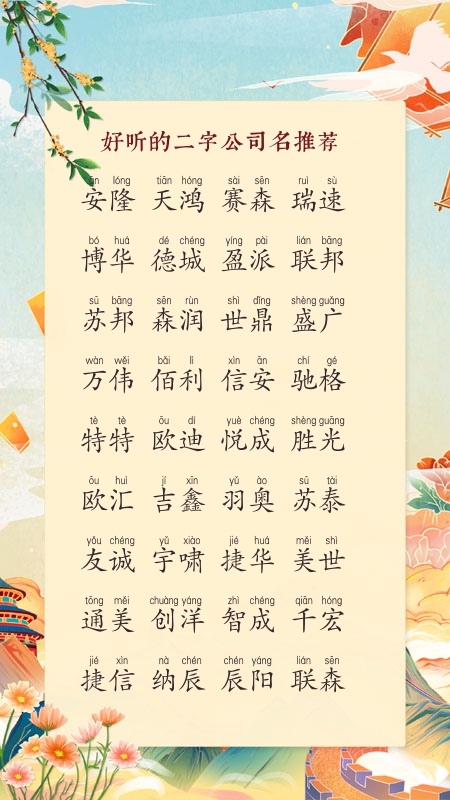 好听的二字公司名推荐
ān lóng tiān hóng sài sēn ruì sù
安隆 天鸿 赛森 瑞速
bó huá dé chéng yíng pài lián bāng
博华 德城 盈派 联邦
sū bāng sēn rùn shì dǐng shèng guǎng
苏邦 森润 世鼎 盛广
wàn wěi bǎi lì xìn ān chí gé
万伟 佰利 信安 驰格
tè tè ōu dí yuè chéng shèng guāng
特特 欧迪 悦成 胜光
ōu huì jí xīn yǔ ào sū tài
欧汇 吉鑫 羽奥 苏泰
yǒu chéng yǔ xiào jié huá měi shì
友诚 宇啸 捷华 美世
tōng měi chuàng yáng zhì chéng qiān hóng
通美 创洋 智成 千宏
jié xìn nà chén chén yáng lián sēn
捷信 纳辰 辰阳 联森